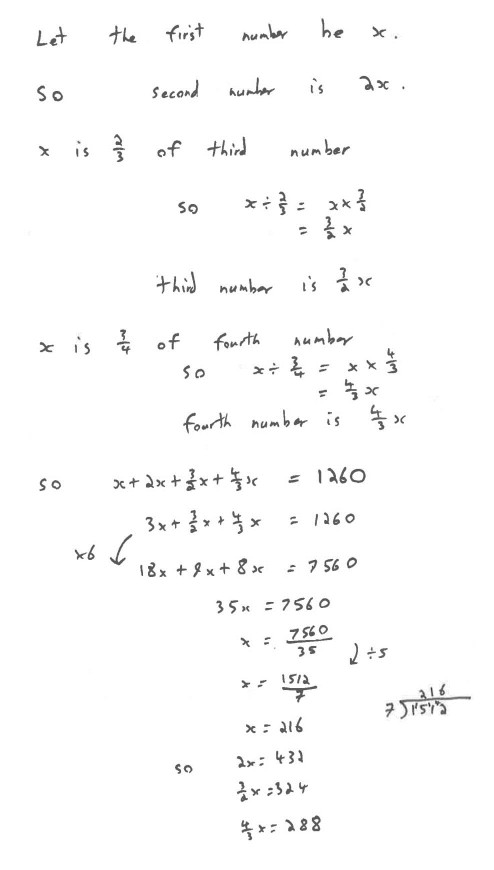 Let the first number be x.
So second number is 2x.
x is 2/3 of third number
so x ÷ 2/3 = x × 3/2
= 3/2 x
third number is 3/2 x
x is 3/4 of fourth number
so x ÷ 3/4 = x × 4/3
= 4/3 x
fourth number is 4/3 x
so x + 2x + 3/2 x + 4/3 x = 1260
3x + 3/2 x + 4/3 x = 1260
×6
18x + 9x + 8x = 7560
35x = 7560
x = 7560/35
÷5
x = 1512/7
216
7)1512
x = 216
so 2x = 432
3/2 x = 324
4/3 x = 288